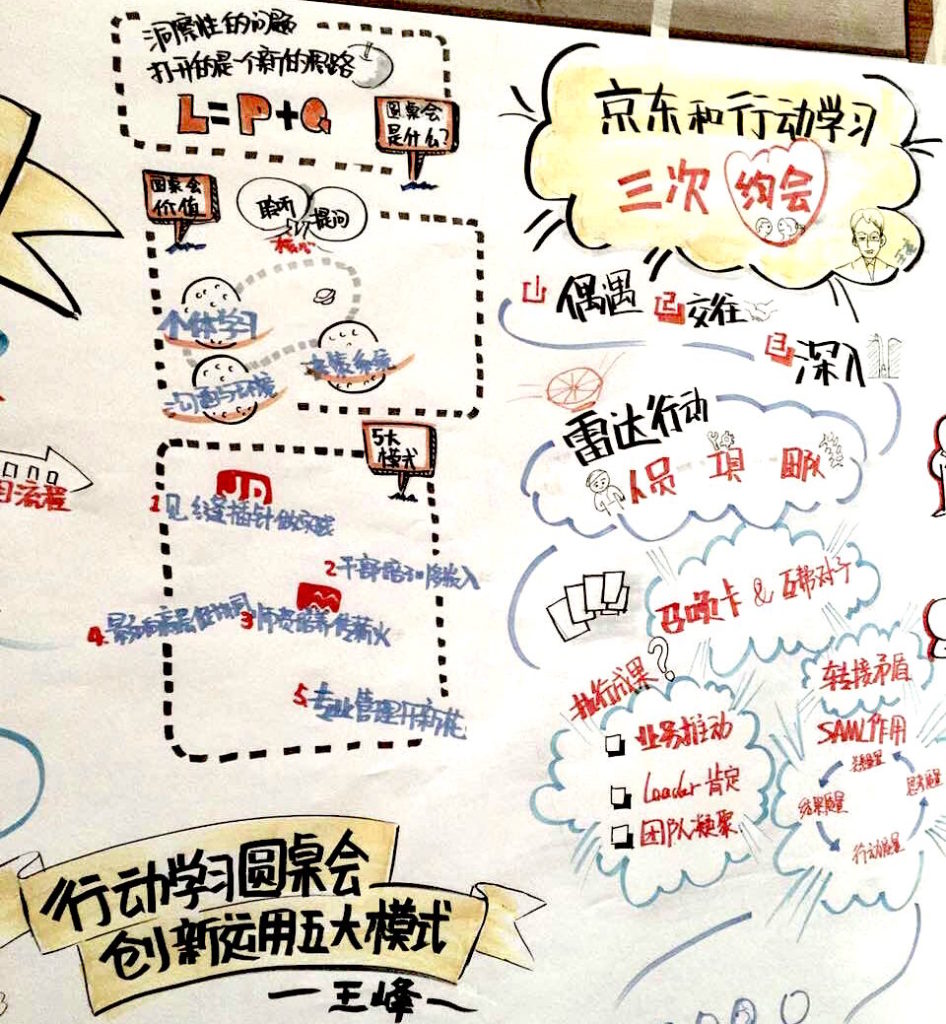 洞察性的问题
打开的是一个新的思路
L=P+Q
圆桌会
是什么?
圆桌会
价值
聆听
提问
核心
个体学习
沟通与环境
5大
模式
JD
1 见缝插针做实践
2 干部培训
3 师资培养传薪火
4.
5. 专业管理开新花
目流程
行动学习圆桌会
创新运用五大模式
一王峰一
京东和行动学习
三次 约会
1 偶遇
2 交往
3 深入
雷达行动
人员 项 团队
召唤卡 & 互帮对子
推行成果?
业务推动
Leader 肯定
团队凝聚
转接矛盾
SAML作用
关系质量
思考质量
行动质量
结果质量